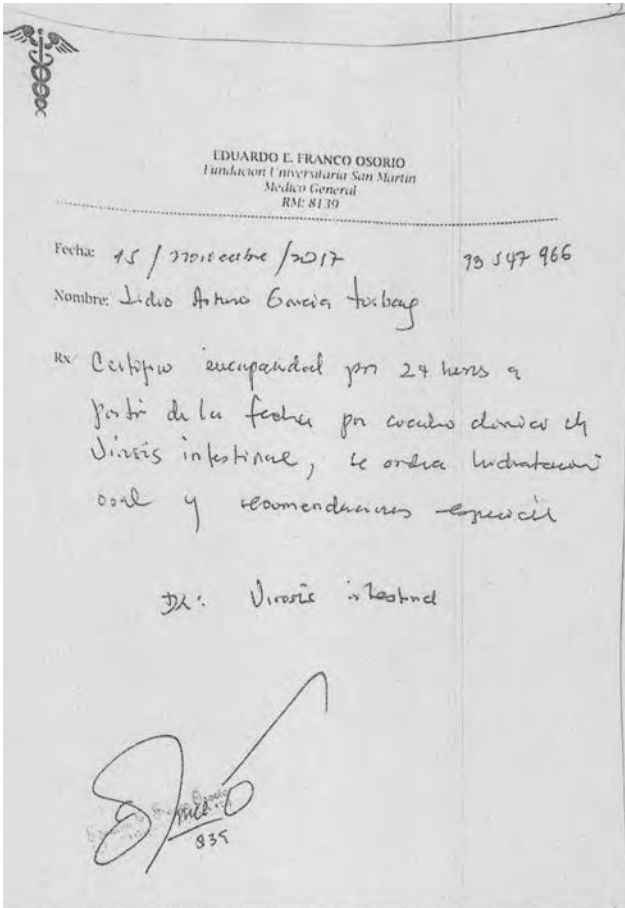 EDUARDO E. FRANCO OSORIO
Fundacion Universitaria San Martin
Medico General
RM: 8139
Fecha: 15 / noviembre / 2017 73 547 966
Nombre: Lidio Arturo Garcia
Rx Certifico incapacidad por 24 horas a
partir de la fecha por cuadro clinico de
Virosis intestinal, se ordena hidratacion
oral y recomendaciones
DX: Virosis intestinal